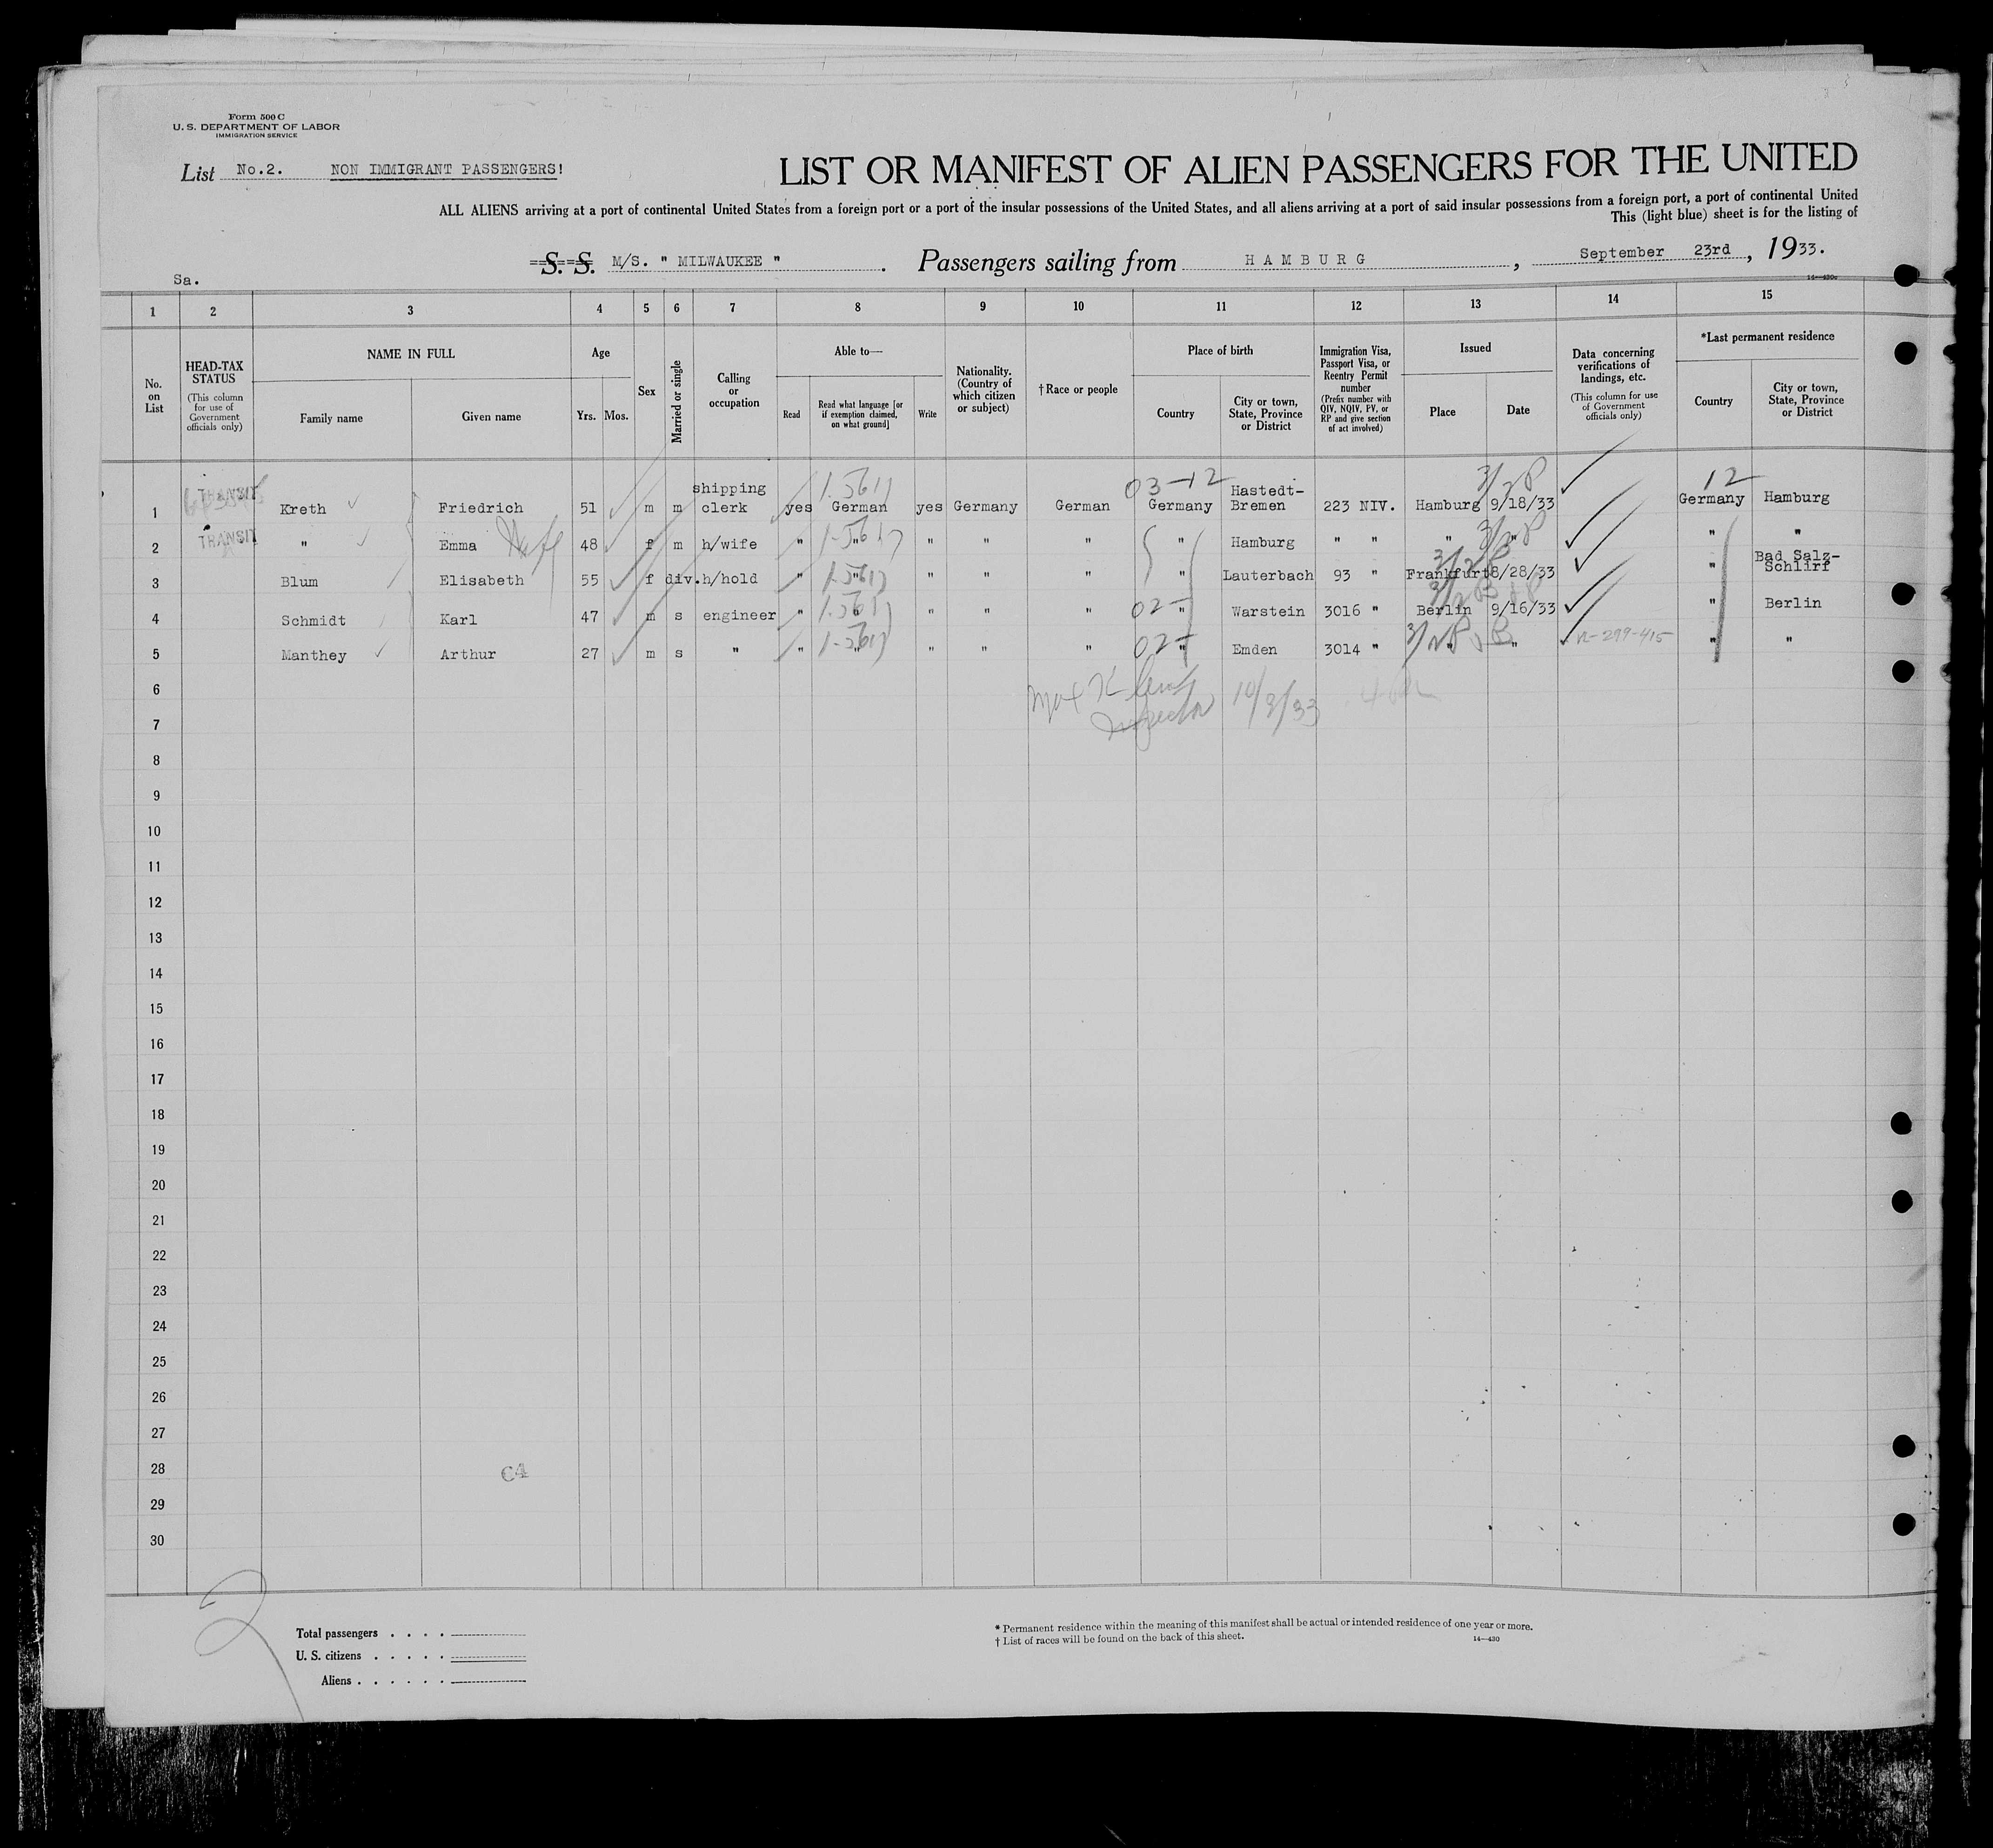 Form 500 C
U. S. DEPARTMENT OF LABOR
IMMIGRATION SERVICE
List No.2. NON IMMIGRANT PASSENGERS!
LIST OR MANIFEST OF ALIEN PASSENGERS FOR THE UNITED
ALL ALIENS arriving at a port of continental United States from a foreign port or a port of the insular possessions of the United States, and all aliens arriving at a port of said insular possessions from a foreign port, a port of continental United
This (light blue) sheet is for the listing of
S. S. M/S. " MILWAUKEE " . Passengers sailing from H A M B U R G , September 23rd , 1933.
Sa.
14—430c
1 2 3 4 5 6 7 8 9 10 11 12 13 14 15
No. on List
HEAD-TAX STATUS (This column for use of Government officials only)
NAME IN FULL
Family name
Given name
Age
Yrs. Mos.
Sex
Married or single
Calling or occupation
Able to—
Read
Read what language [or if exemption claimed, on what ground]
Write
Nationality. (Country of which citizen or subject)
† Race or people
Place of birth
Country
City or town, State, Province or District
Immigration Visa, Passport Visa, or Reentry Permit number (Prefix number with QIV, NQIV, PV, or RP and give section of act involved)
Issued
Place
Date
Data concerning verifications of landings, etc. (This column for use of Government officials only)
*Last permanent residence
Country
City or town, State, Province or District
03-12 12
1 TRANSIT Kreth Friedrich 51 m m shipping clerk yes German yes Germany German Germany Hastedt-Bremen 223 NIV. Hamburg 9/18/33 Germany Hamburg
2 TRANSIT " Emma Wife 48 f m h/wife " " " " " " Hamburg " " " " " "
3 Blum Elisabeth 55 f div. h/hold " " " " " " Lauterbach 93 " Frankfurt 8/28/33 " Bad Salz-Schlirf
4 Schmidt Karl 47 m s engineer " " " " " 02- " Warstein 3016 " Berlin 9/16/33 " Berlin
5 Manthey Arthur 27 m s " " " " " " 02- " Emden 3014 " " " n-299-415 " "
6
Inspector 10/3/33
7
8
9
10
11
12
13
14
15
16
17
18
19
20
21
22
23
24
25
26
27
28
C4
29
30
2
Total passengers . . . .
U. S. citizens . . . . .
Aliens . . . . . .
* Permanent residence within the meaning of this manifest shall be actual or intended residence of one year or more.
† List of races will be found on the back of this sheet.
14—430